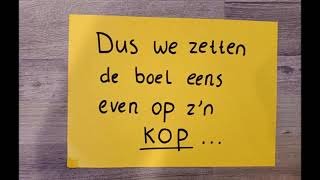 Dus we zetten
de boel eens
even op z'n
KOP ...